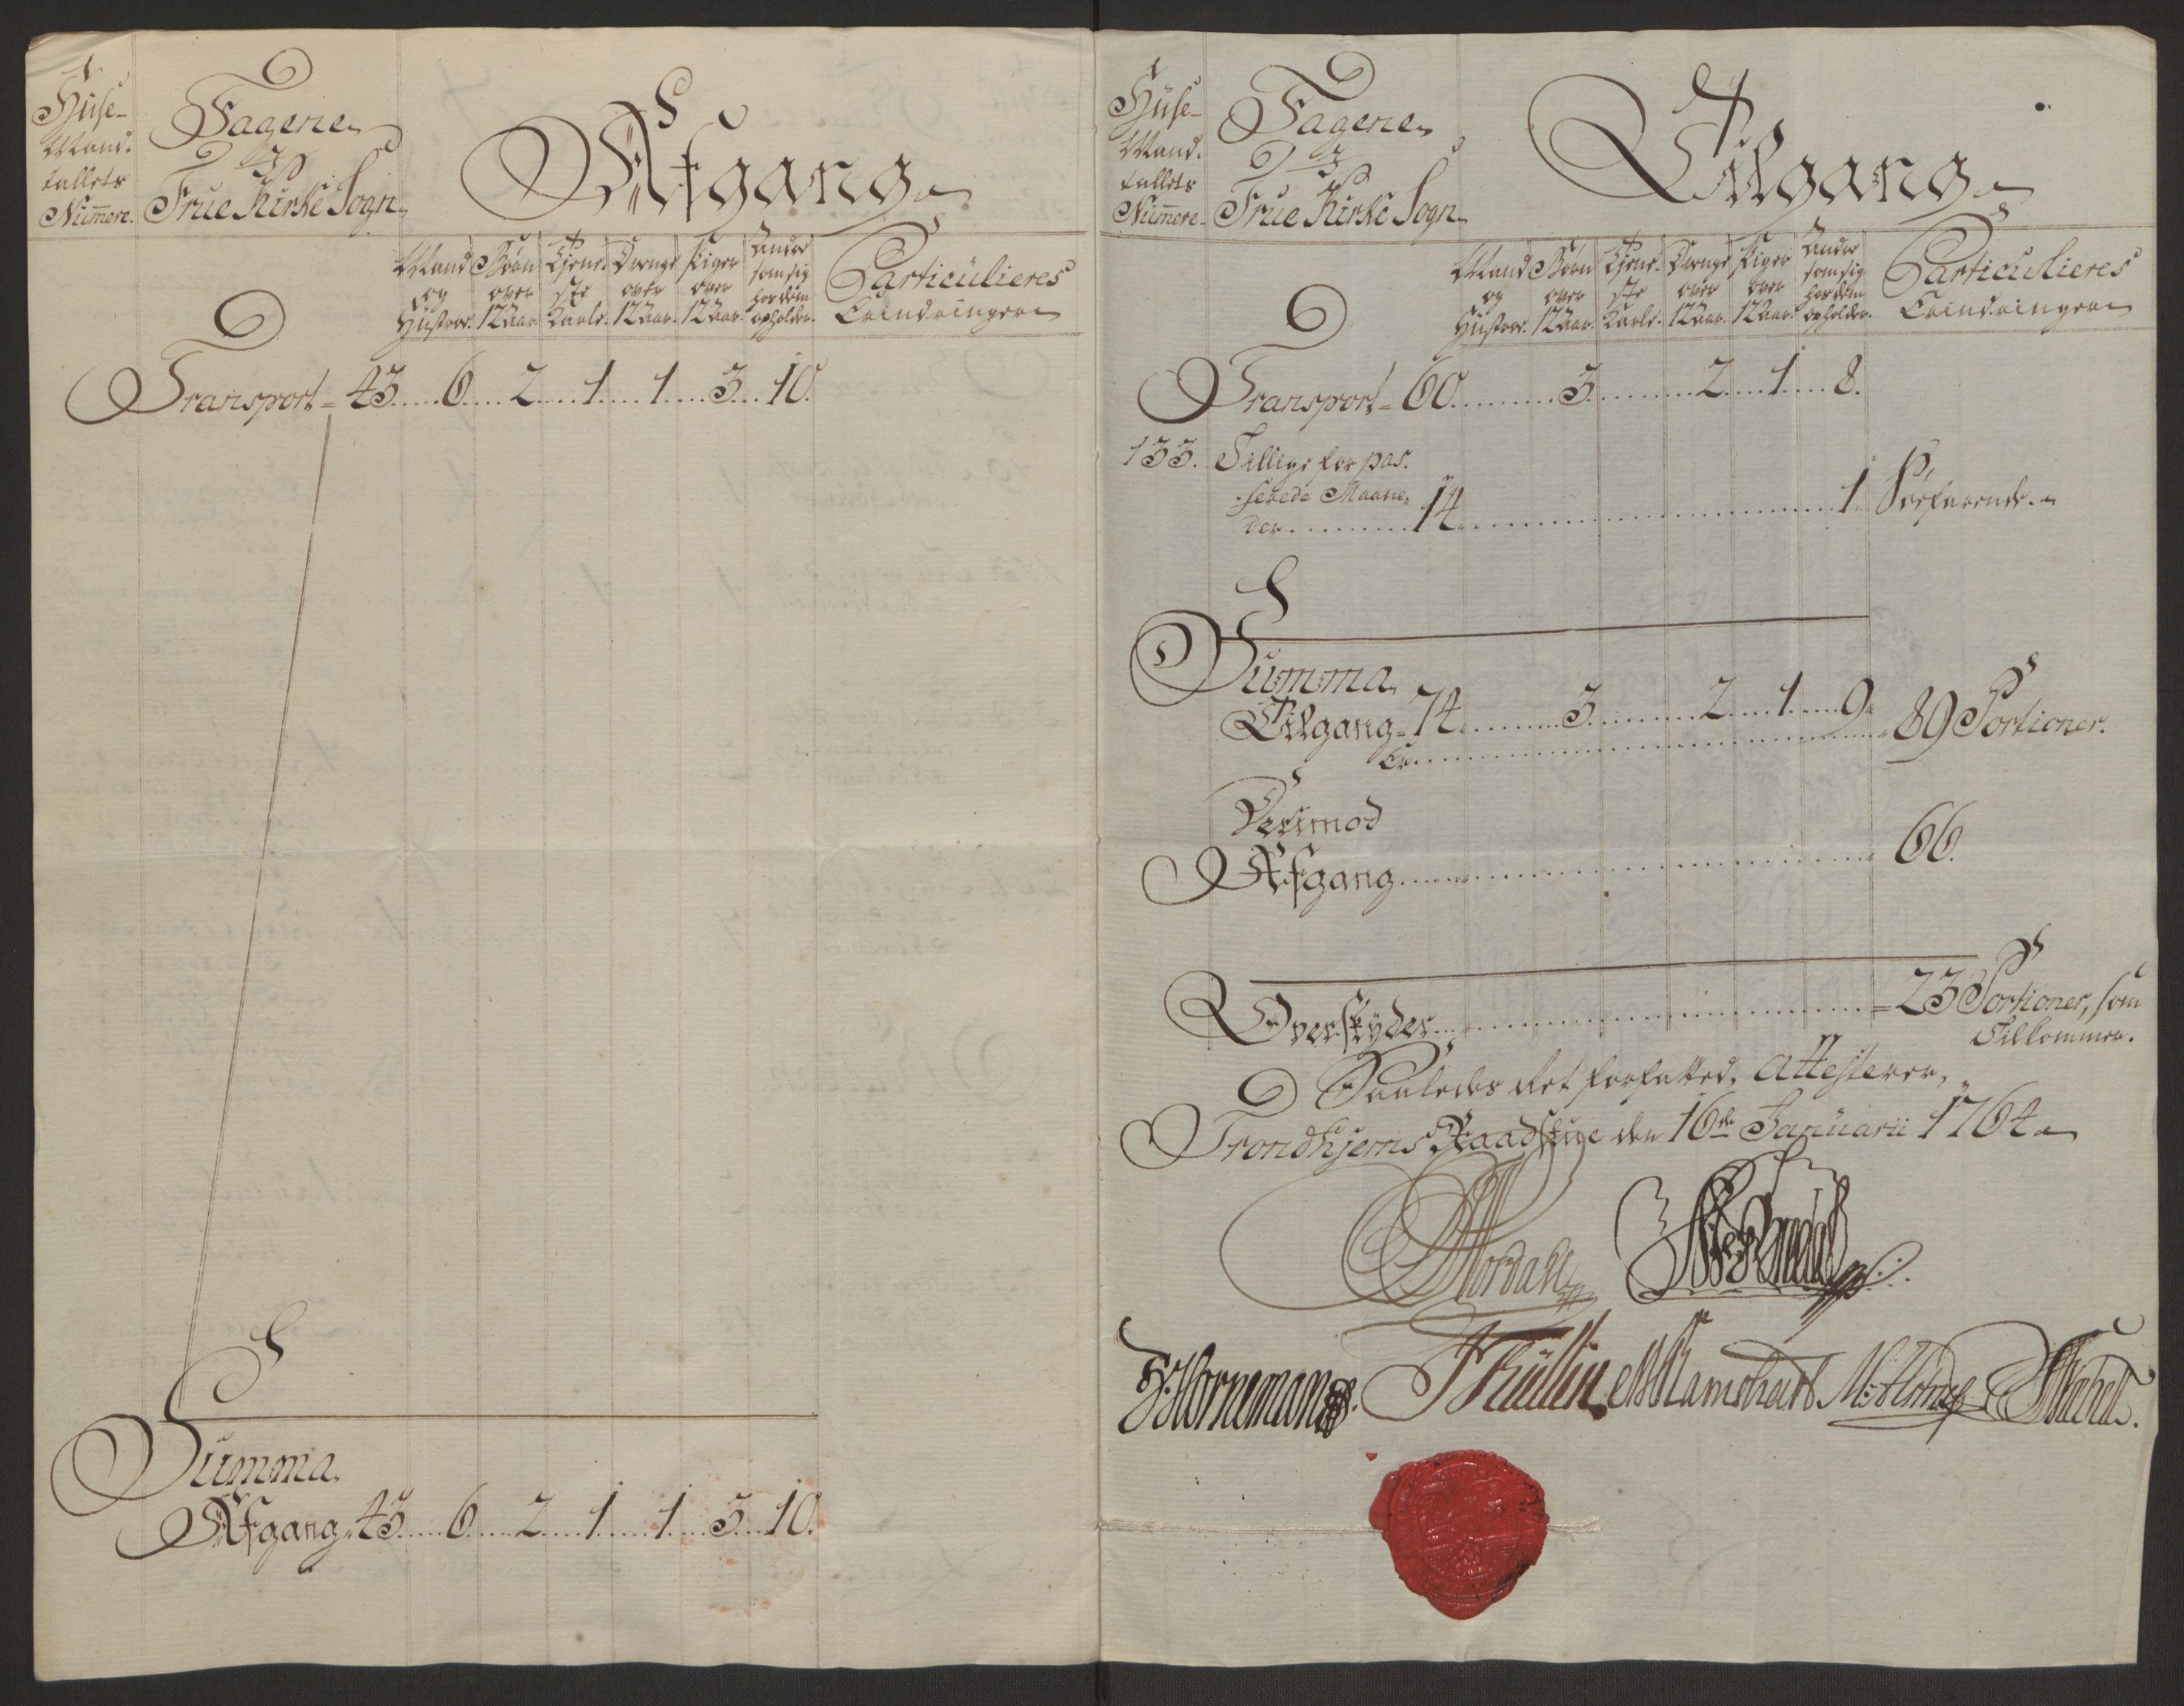 Huse-
Mand-
tallets
Num̄ere.
Tagerie
i
Frue Kirke Sogn
Afgang
Mand og Hustroe.
Børn over 12 Aar.
Tjene-ste Karle.
Drenge over 12 Aar.
Piger over 12 Aar.
Andre som sig hos dem opholder.
Particulieres
Erindringer
Transport = 43. 6. 2. 1. 1. 3. 10.
Summa
Afgang 43. 6. 2. 1. 1. 3. 10.
Huse-
Mand-
tallets
Num̄ere.
Tagerie
i
Frue Kirke Sogn
Tilgang
Mand og Hustroe.
Børn over 12 Aar.
Tjene-ste Karle.
Drenge over 12 Aar.
Piger over 12 Aar.
Andre som sig hos dem opholder.
Particulieres
Erindringer
Transport = 60. 3. 2. 1. 8.
133. Tillige for pas-
serede Maane-
der 14 1. Søefarende.
Summa
Tilgang = 74. 3. 2. 1. 9.
Er 89 Portioner.
Derimod
Afgang 66.
Overskyder = 23 Portioner, som
Tilkommer.
Saaledes Ret forfatted, Attesterer,
Trondhjems Raadstue den 16de Januarii 1764
Hornemann